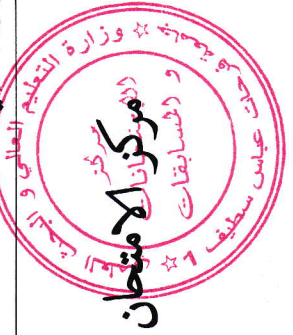 وزارة التعليم العالي و البحث العلمي
جامعة فرحات عباس سطيف 1
مركز
الامتحانات
و المسابقات
مركز الامتحان